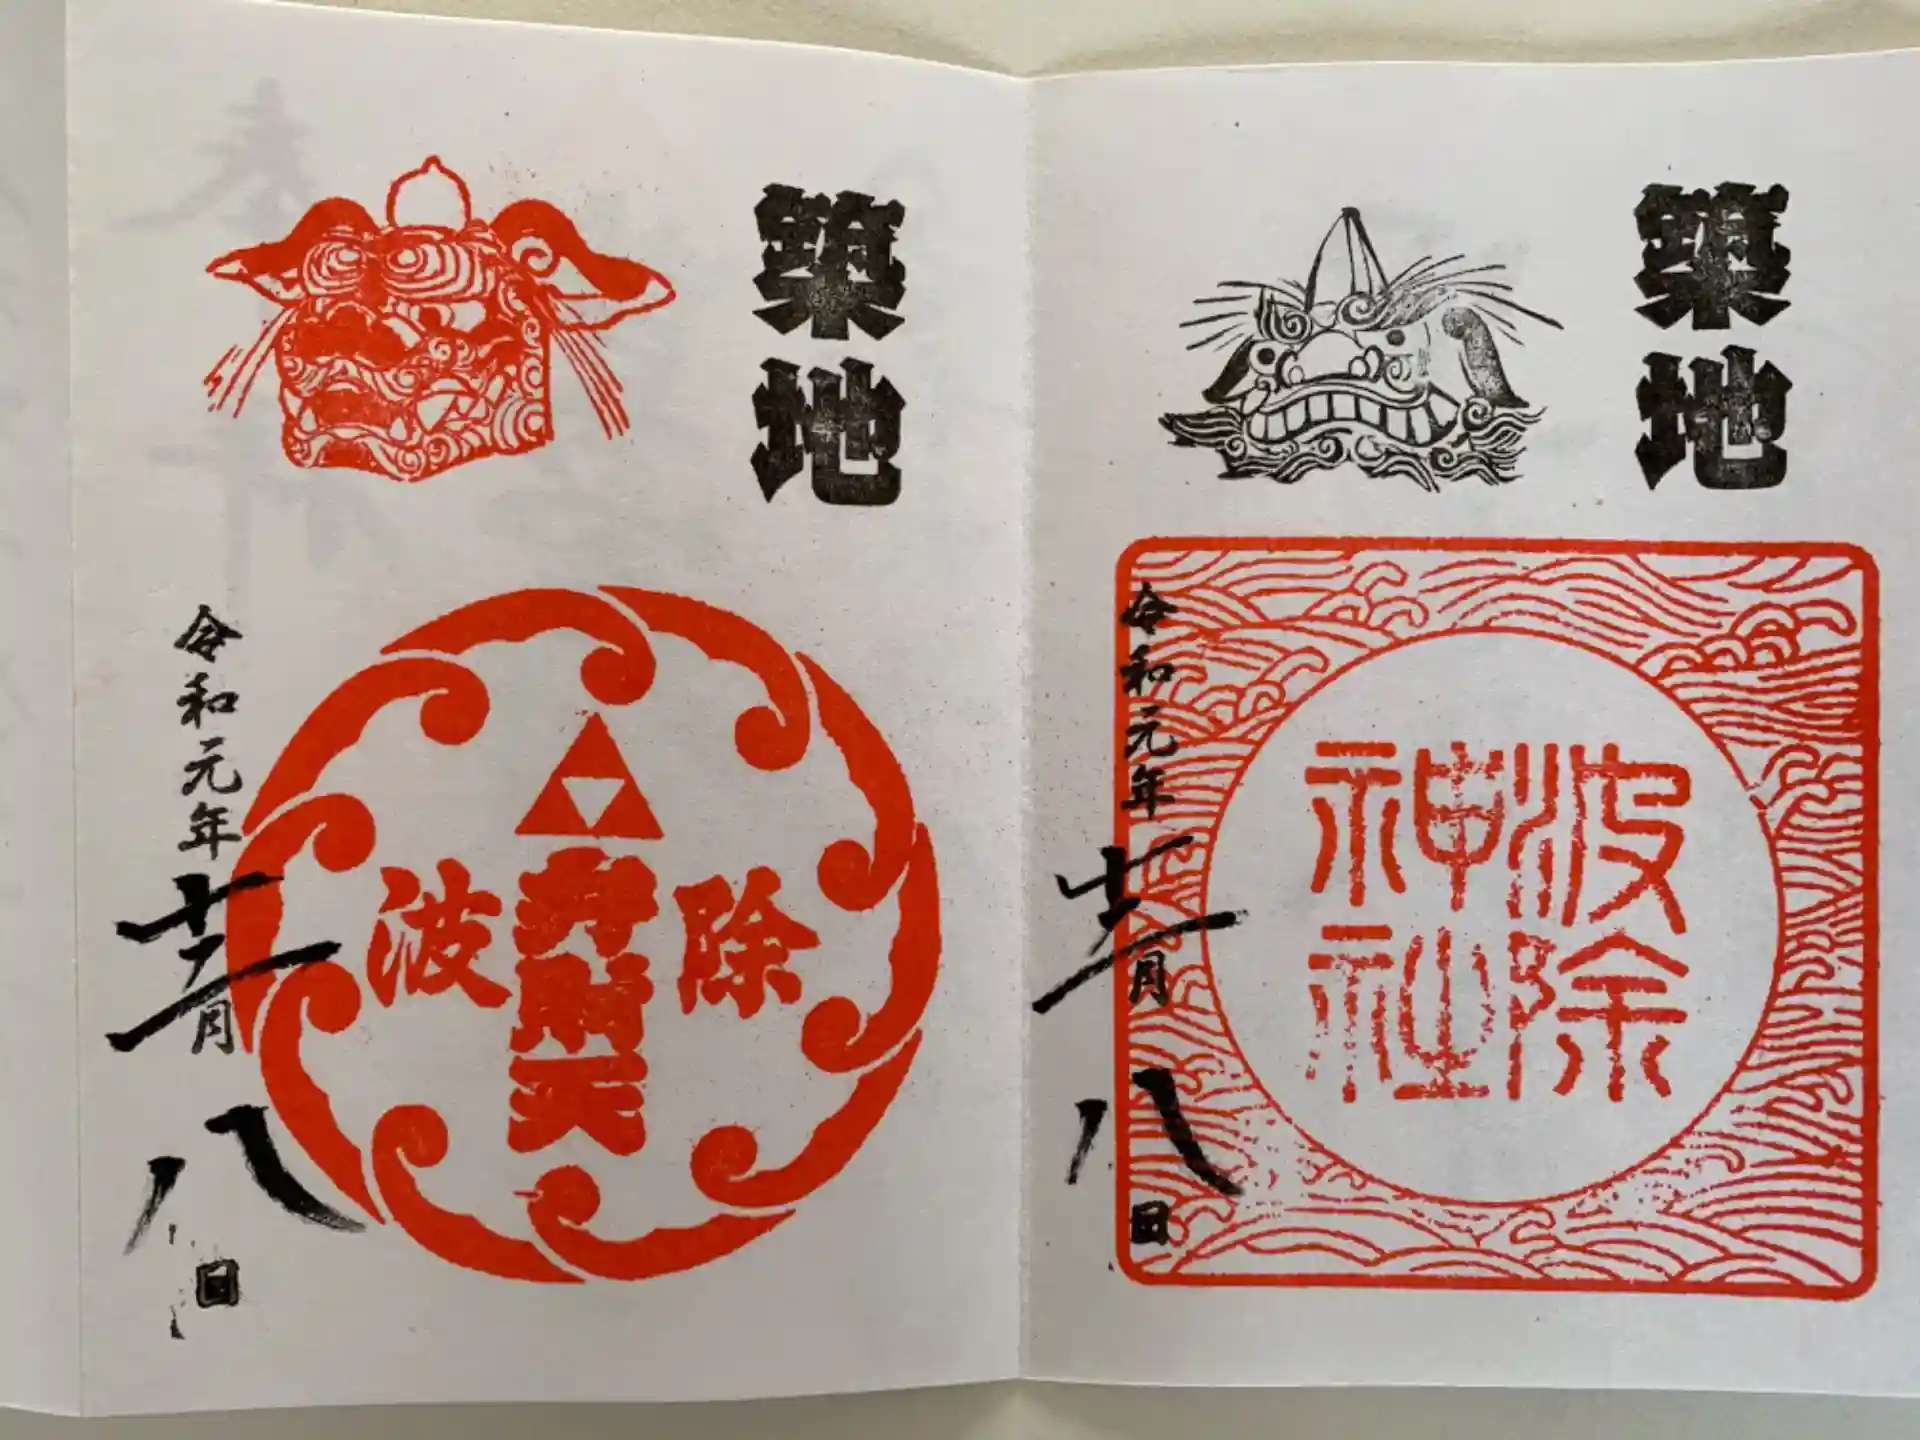 築地
波除
弁財天
令和元年十二月八日
築地
波除
神社
令和元年十二月八日